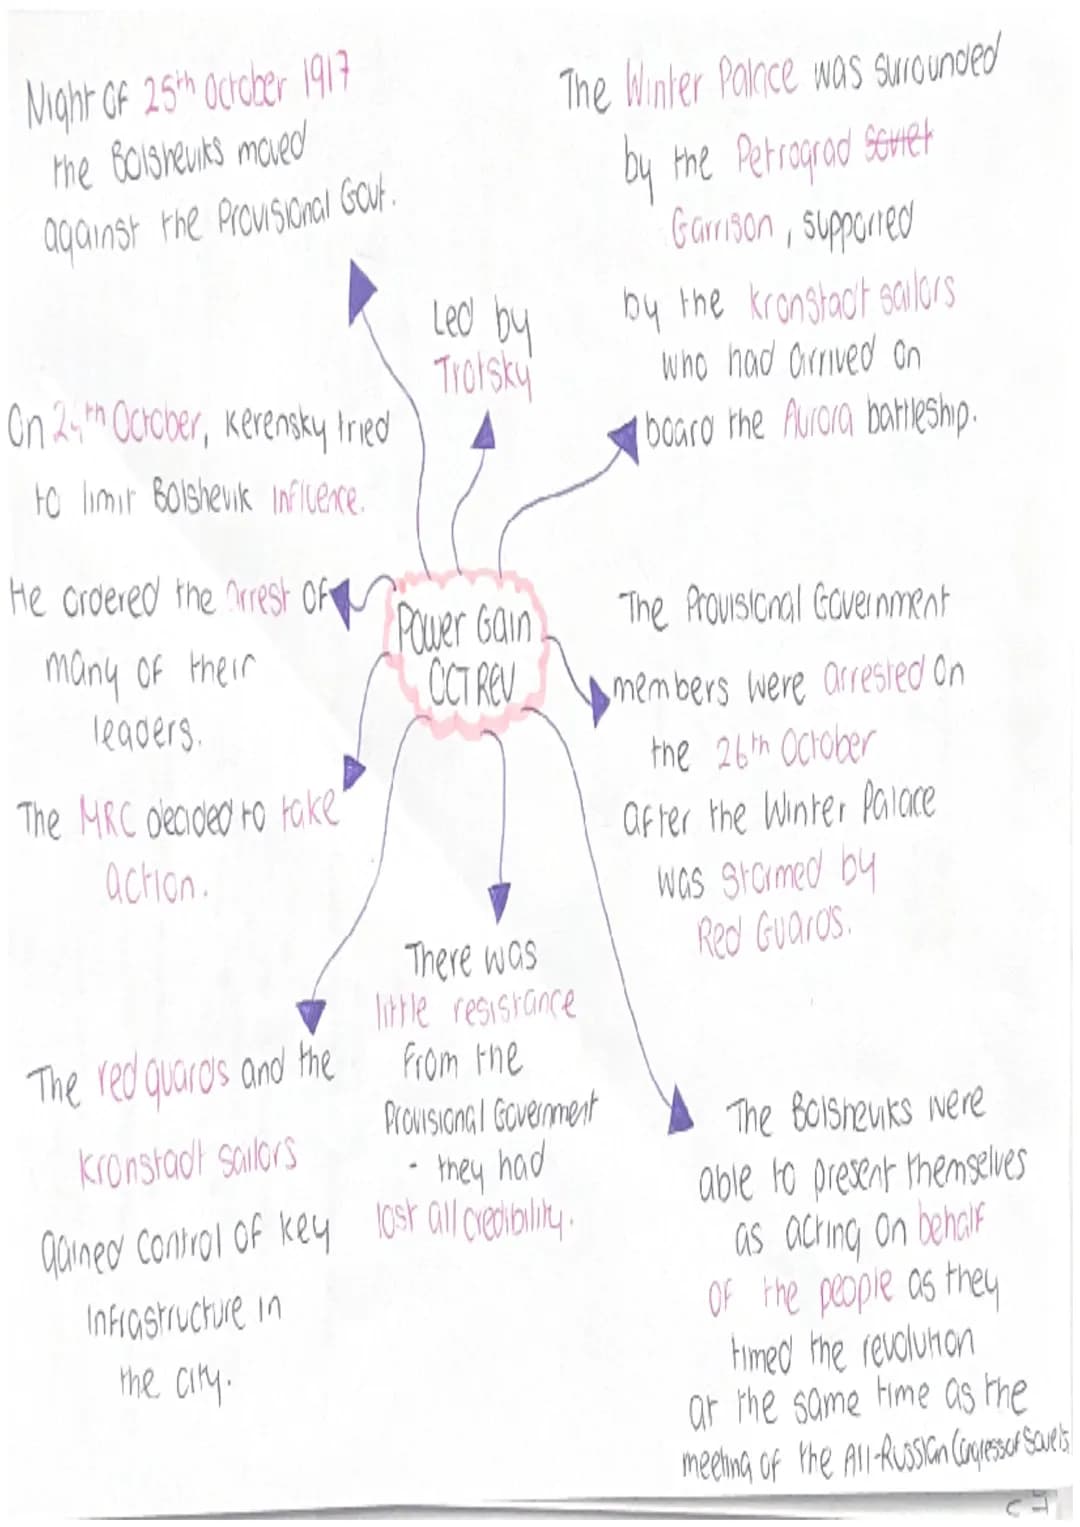 Night of 25th October 1917
the Bolsheviks moved
against the Provisional Govt.
Led by
Trotsky
The Winter Palace was surrounded
by the Petrograd Soviet
Garrison, supported
by the Kronstadt sailors
who had arrived on
board the Aurora battleship.
On 24th October, Kerensky tried
to limit Bolshevik influence.
He ordered the arrest of
many of their
leaders.
Power Gain
OCT REV
The Provisional Government
members were arrested on
the 26th October
after the Winter Palace
was stormed by
Red Guards.
The MRC decided to take
action.
The red guards and the
Kronstadt sailors
gained control of key
infrastructure in
the city.
There was
little resistance
from the
Provisional Government
- they had
lost all credibility.
The Bolsheviks were
able to present themselves
as acting on behalf
of the people as they
timed the revolution
at the same time as the
meeting of the All-Russian Congress of Soviets